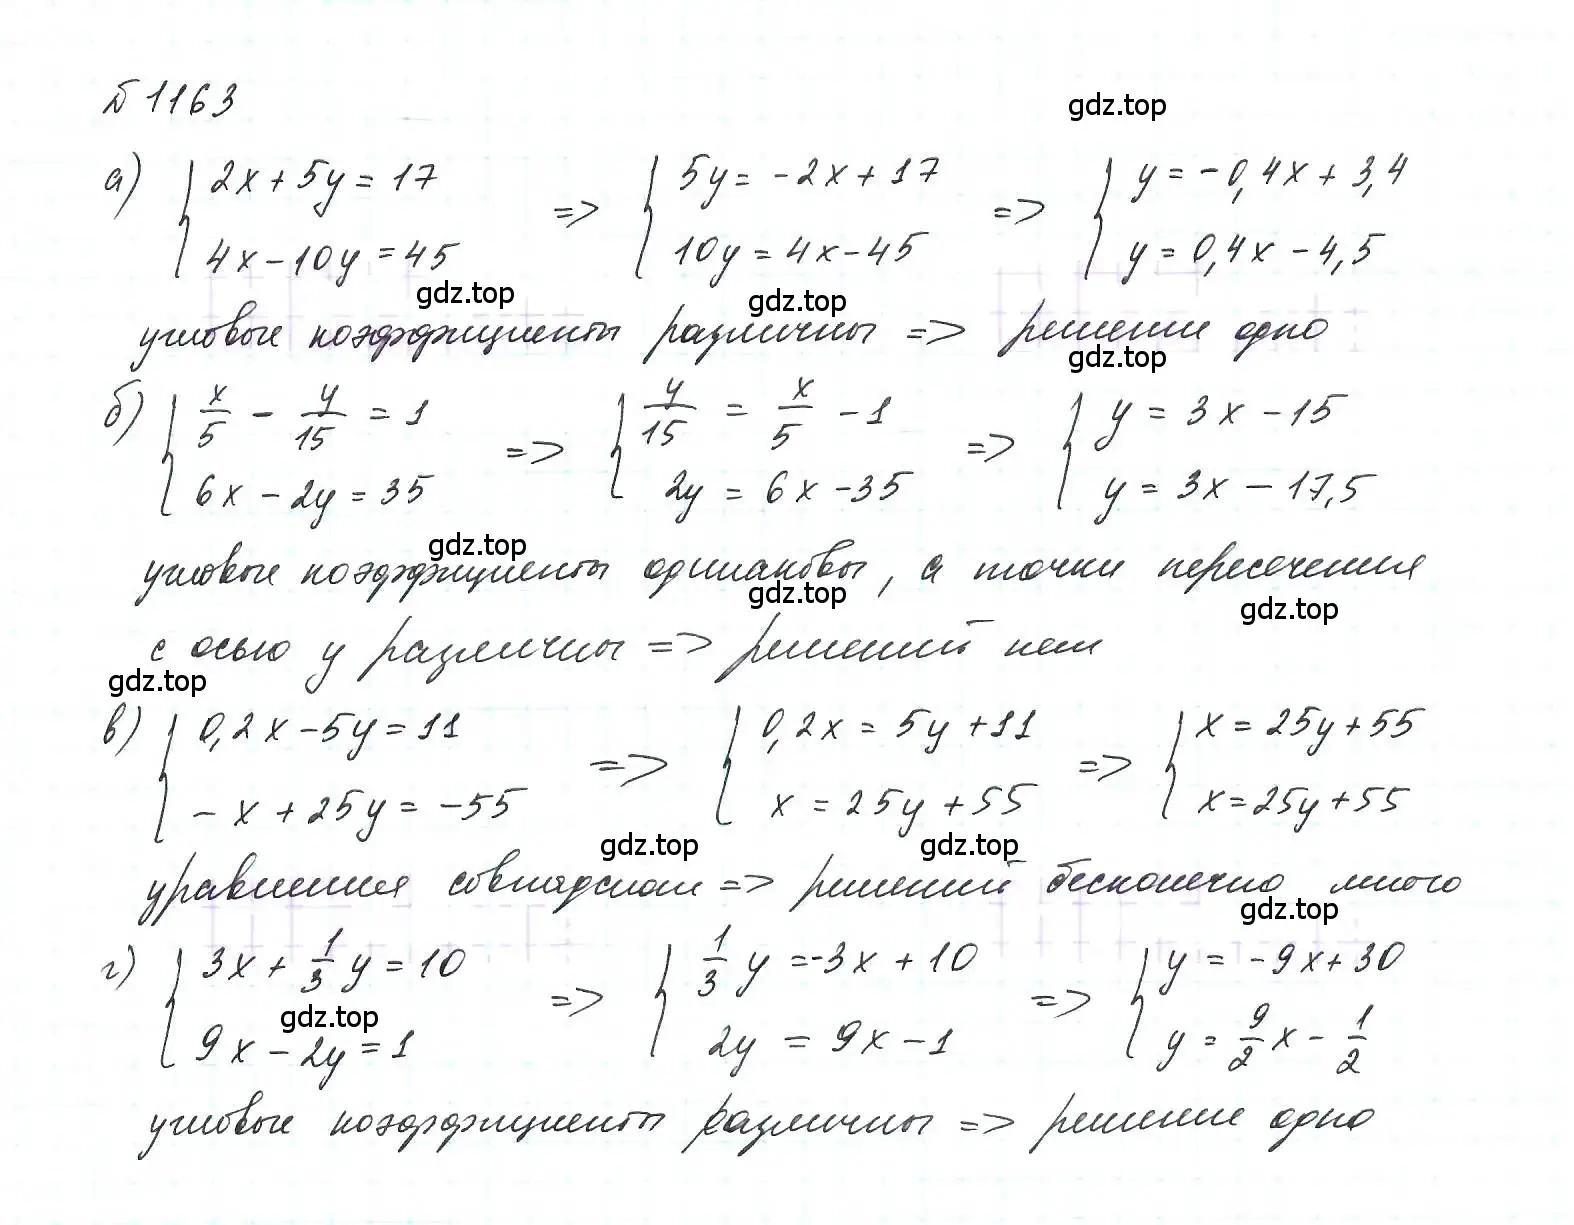 №1163
gdz.top
а) { 2x + 5y = 17 => { 5y = -2x + 17 => { y = -0,4x + 3,4
4x - 10y = 45 10y = 4x - 45 y = 0,4x - 4,5
gdz.top gdz.top
угловые коэффициенты различны => решение одно
gdz.top
б) { x/5 - y/15 = 1 => { y/15 = x/5 - 1 => { y = 3x - 15
6x - 2y = 35 2y = 6x - 35 y = 3x - 17,5
gdz.top
угловые коэффициенты одинаковы, а точки пересечения
gdz.top gdz.top
с осью y различны => решений нет
gdz.top
в) { 0,2x - 5y = 11 => { 0,2x = 5y + 11 => { x = 25y + 55
-x + 25y = -55 x = 25y + 55 x = 25y + 55
gdz.top gdz.top
уравнения совпадают => решений бесконечно много
gdz.top
г) { 3x + 1/3 y = 10 => { 1/3 y = -3x + 10 => { y = -9x + 30
gdz.top
9x - 2y = 1 2y = 9x - 1 y = 9/2 x - 1/2
угловые коэффициенты различны => решение одно